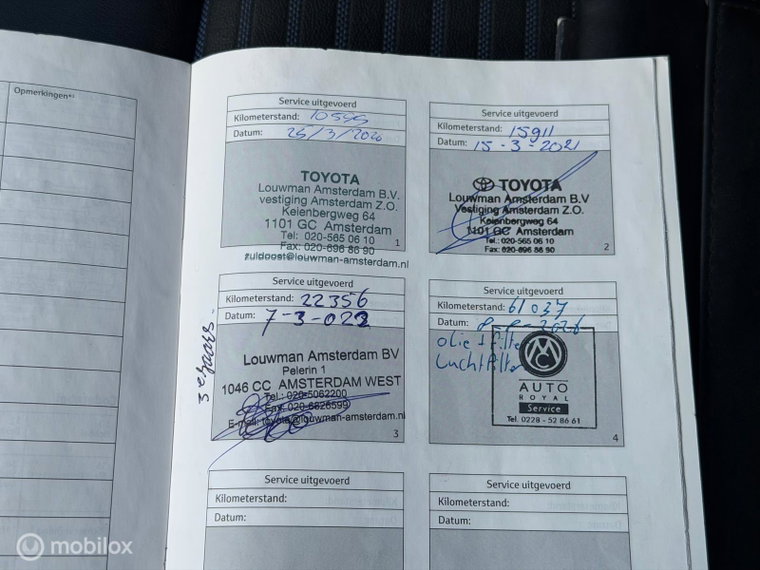 Opmerkingen*¹
Service uitgevoerd
Kilometerstand: 10595
Datum: 25/3/2020
TOYOTA
Louwman Amsterdam B.V.
vestiging Amsterdam Z.O.
Keienbergweg 64
1101 GC Amsterdam
Tel: 020-565 06 10
Fax: 020-696 86 90
zuidoost@louwman-amsterdam.nl
1
Service uitgevoerd
Kilometerstand: 15911
Datum: 15-3-2021
TOYOTA
Louwman Amsterdam B.V
Vestiging Amsterdam Z.O.
Keienbergweg 64
1101 GC Amsterdam
Tel: 020-565 06 10
Fax: 020-696 86 90
2
Service uitgevoerd
Kilometerstand: 22356
Datum: 7-3-022
3e jaars.
Louwman Amsterdam BV
Pelerin 1
1046 CC AMSTERDAM WEST
Tel.: 020-5062200
Fax: 020-6826599
E-mail: toyota@louwman-amsterdam.nl
3
Service uitgevoerd
Kilometerstand: 61037
Datum:
olie + filter
Luchtfilter
AUTO
ROYAL
Service
Tel. 0228 - 52 86 61
4
Service uitgevoerd
Kilometerstand:
Datum:
Service uitgevoerd
Kilometerstand:
Datum:
mobilox